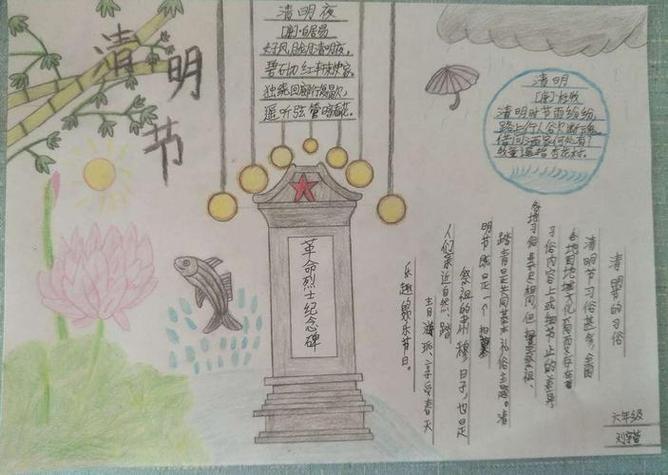 清明节
清明夜
[唐]·白居易
好风胧月清明夜，
碧砌红轩刺史家。
独绕回廊行复歇，
遥听弦管暗看花。
清明
[唐]·杜牧
清明时节雨纷纷，
路上行人欲断魂。
借问酒家何处有？
牧童遥指杏花村。
革命烈士纪念碑
清明节的习俗
清明节习俗甚多，全国
各地因地域文化
习俗内容上或细节上的差异，
各地习俗
踏青是共同基本礼俗主题。清
明节既是一个
祭祖的肃穆日子，也是
人们亲近自然、踏
青游玩、享受春天
乐趣的欢乐节日。
六年级